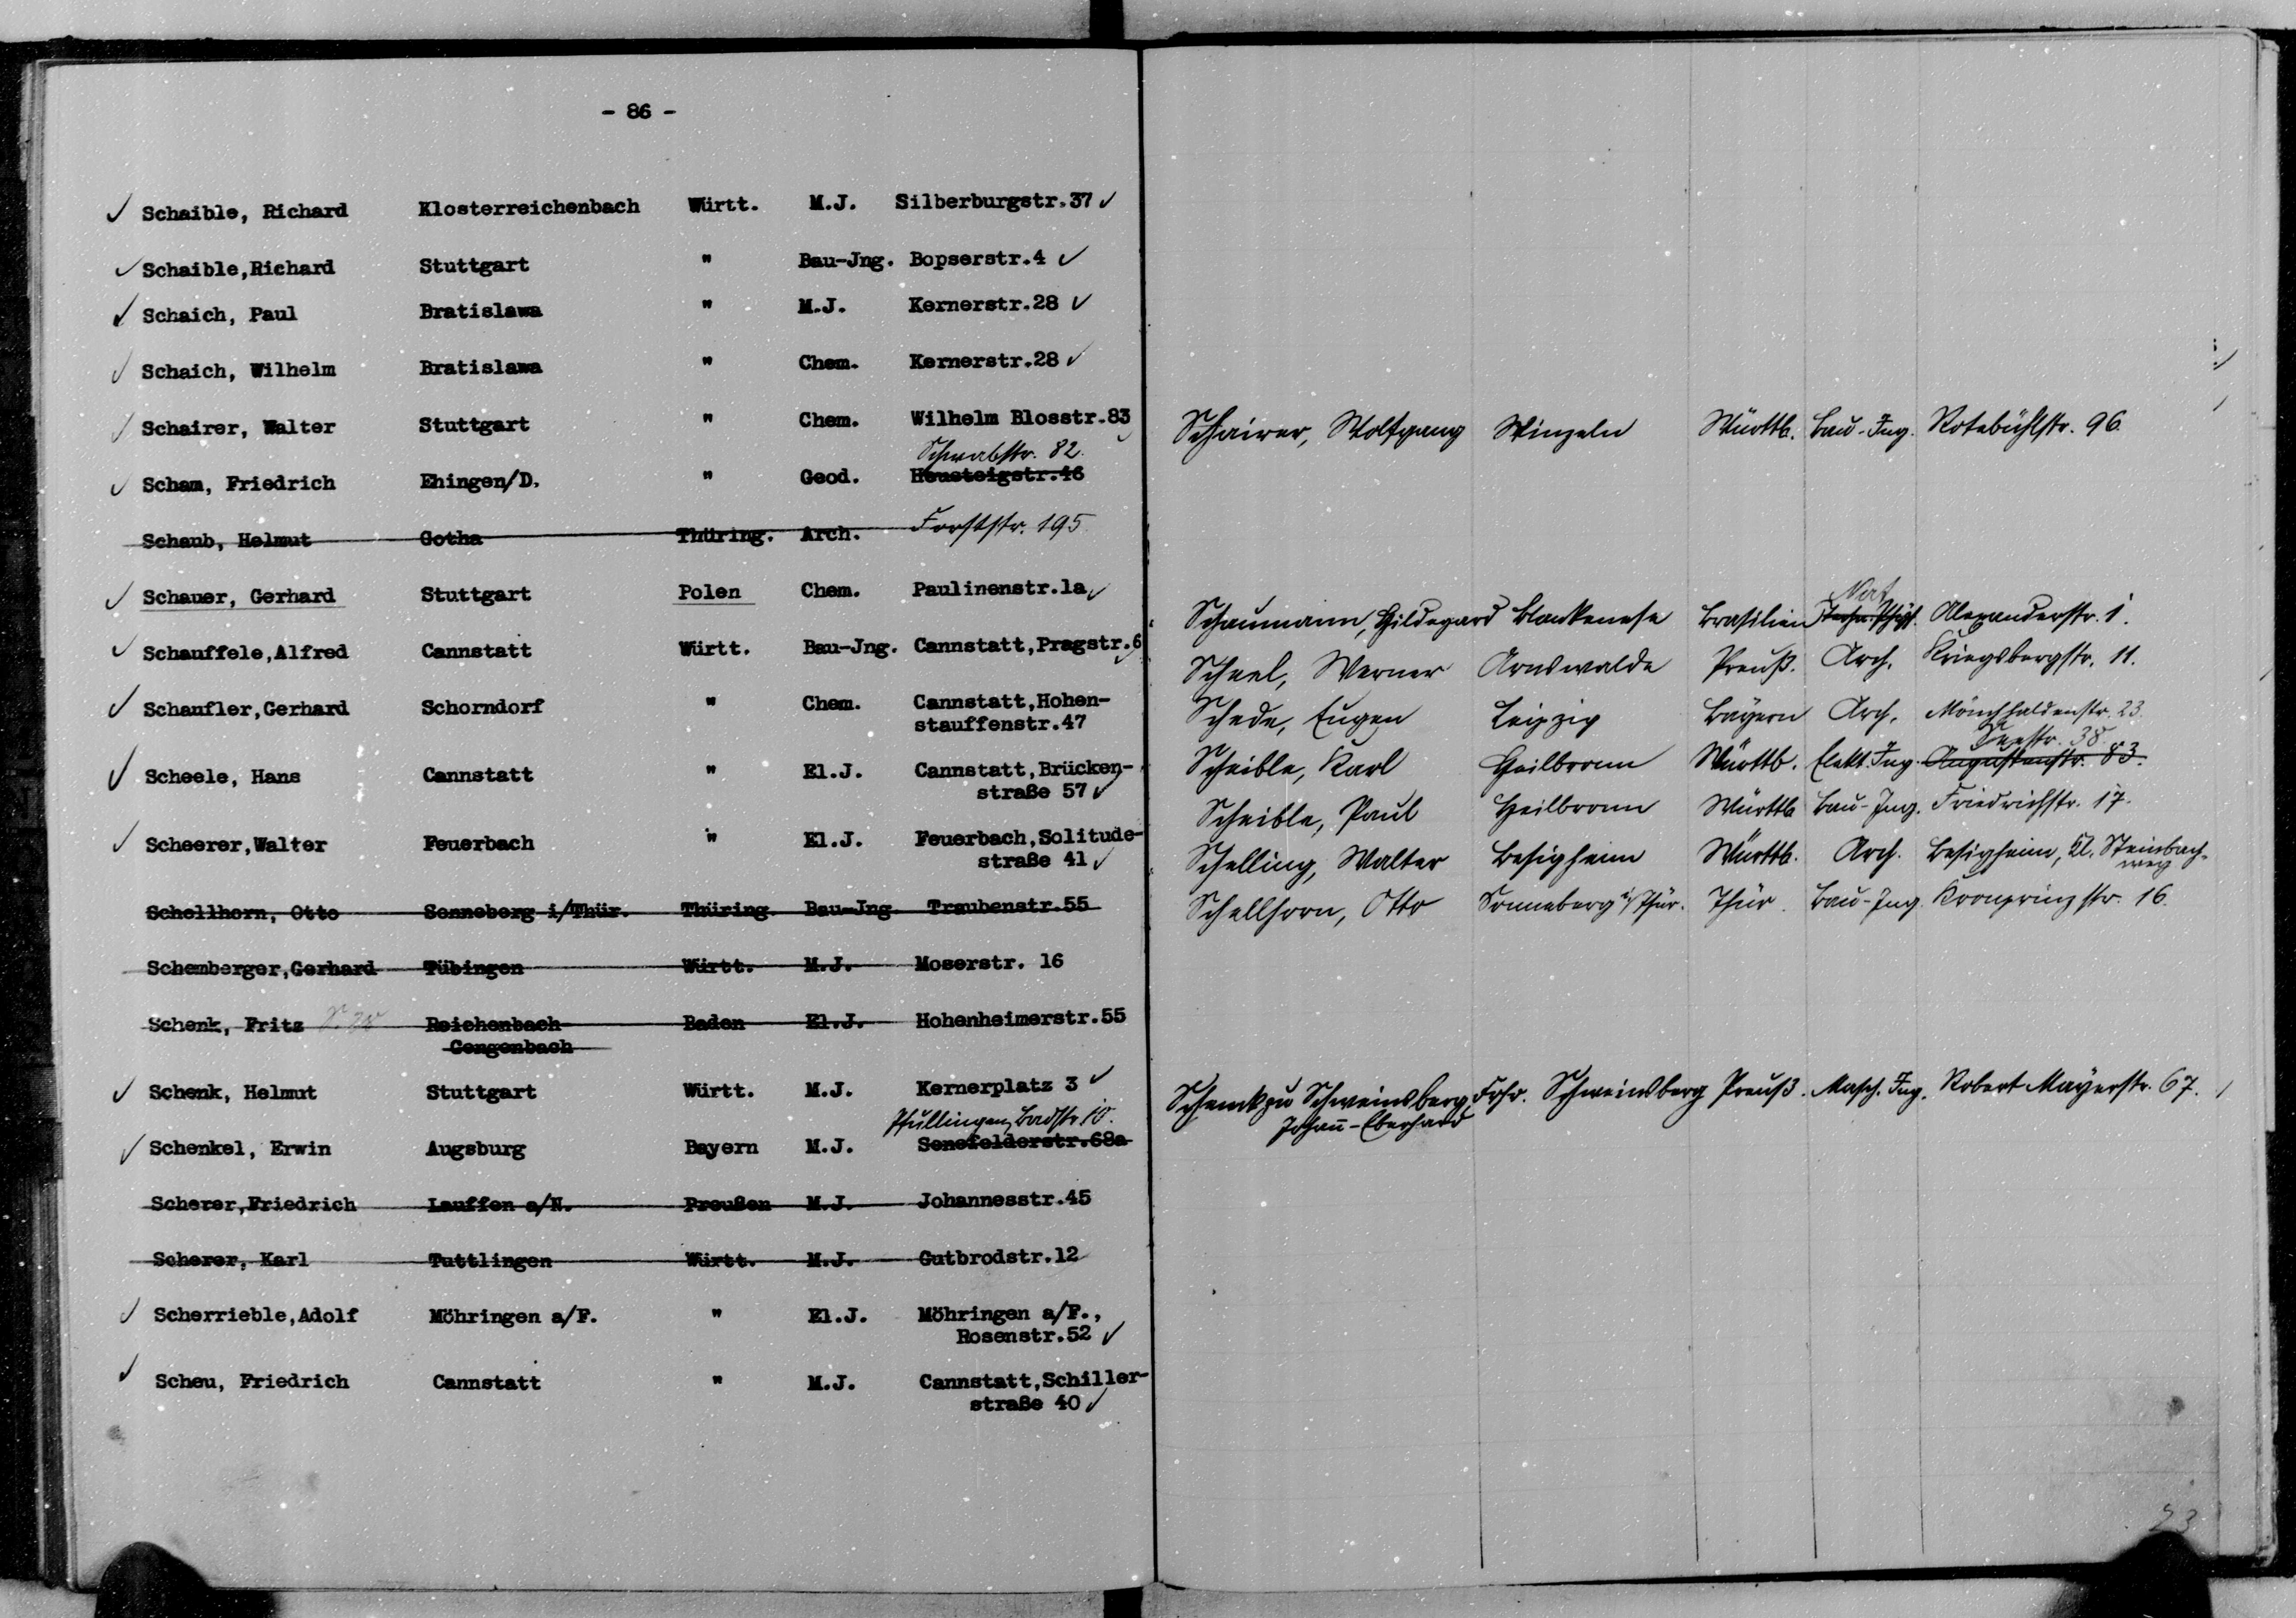 - 86 -
Schaible, Richard Klosterreichenbach Württ. M.J. Silberburgstr.37
Schaible,Richard Stuttgart " Bau-Jng. Bopserstr.4
Schaich, Paul Bratislawa " M.J. Kernerstr.28
Schaich, Wilhelm Bratislawa " Chem. Kernerstr.28
Schairer, Walter Stuttgart " Chem. Wilhelm Blosstr.83
Schwabstr. 82.
Scham, Friedrich Ehingen/D. " Geod. Heusteigstr.46
Schaub, Helmut Gotha Thüring. Arch. Forststr. 195
Schauer, Gerhard Stuttgart Polen Chem. Paulinenstr.1a
Schauffele,Alfred Cannstatt Württ. Bau-Jng. Cannstatt,Pragstr.6
Schaufler,Gerhard Schorndorf " Chem. Cannstatt,Hohen-
stauffenstr.47
Scheele, Hans Cannstatt " El.J. Cannstatt,Brücken-
straße 57
Scheerer,Walter Feuerbach " El.J. Feuerbach,Solitude-
straße 41
Schellhorn, Otto Sonneberg i/Thür. Thüring. Bau-Jng Traubenstr.55
Schemberger,Gerhard Tübingen Württ. M.J. Moserstr. 16
Schenk, Fritz Reichenbach Baden El.J. Hohenheimerstr.55
Gengenbach
Schenk, Helmut Stuttgart Württ. M.J. Kernerplatz 3
Pfullingen, Badstr. 10.
Schenkel, Erwin Augsburg Bayern M.J. Senefelderstr.68a
Scherer,Friedrich Lauffen a/N. Preußen M.J. Johannesstr.45
Scherer, Karl Tuttlingen Württ. M.J. Gutbrodstr.12
Scherrieble,Adolf Möhringen a/F. " El.J. Möhringen a/F.,
Rosenstr.52
Scheu, Friedrich Cannstatt " M.J. Cannstatt,Schiller-
straße 40
Schairer, Wolfgang Winzeln Württb. Bau-Ing. Rotebühlstr. 96.
Nat
Schaumann, Hildegard Blankenese Brasilien Alexanderstr. 1.
Scheel, Werner Arnswalde Preuß. Arch. Kriegsbergstr. 11.
Schede, Eugen Leipzig Bayern Arch. Mönchhaldenstr. 23.
Seestr. 38
Scheible, Karl Heilbronn Württb. Elekt. Ing. Augustenstr. 83.
Scheible, Paul Heilbronn Württb Bau-Ing. Friedrichstr. 17.
Schelling, Walter Besigheim Württb. Arch. Besigheim, Kl. Steinbach-
weg
Schellhorn, Otto Sonneberg i/Thür. Thür. Bau-Ing. Kronprinzstr. 16.
Schenck zu Schweinsberg, Frhr. Schweinsberg Preuß. Masch. Ing. Robert Mayerstr. 67.
Johann-Eberhard
23